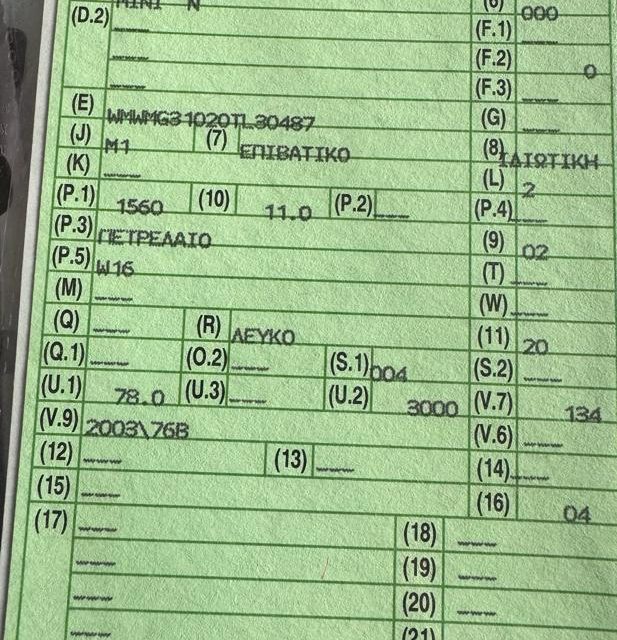 (D.2) MINI N (6) 000
(F.1)
(F.2) 0
(F.3)
(E) WMWMG31020TL30487 (G)
(J) M1 (7) ΕΠΙΒΑΤΙΚΟ (8) ΙΔΙΩΤΙΚΗ
(K) (L) 2
(P.1) 1560 (10) 11.0 (P.2) (P.4)
(P.3) ΠΕΤΡΕΛΑΙΟ (9) 02
(P.5) W16 (T)
(M) (W)
(Q) (R) ΛΕΥΚΟ (11) 20
(Q.1) (O.2) (S.1) 004 (S.2)
(U.1) 78.0 (U.3) (U.2) 3000 (V.7) 134
(V.9) 2003\76B (V.6)
(12) (13) (14)
(15) (16) 04
(17) (18)
(19)
(20)
(21)